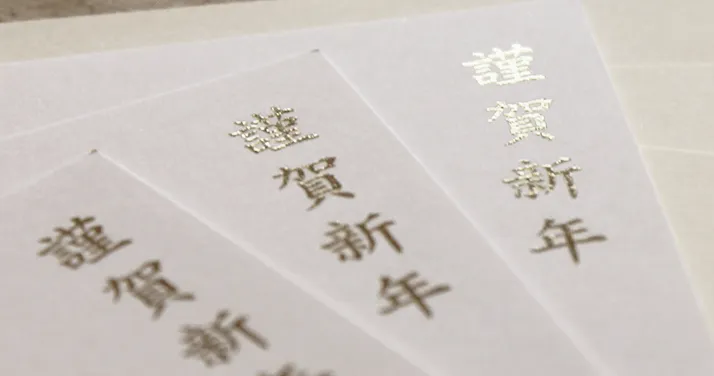 謹賀新年
謹賀新年
謹賀新